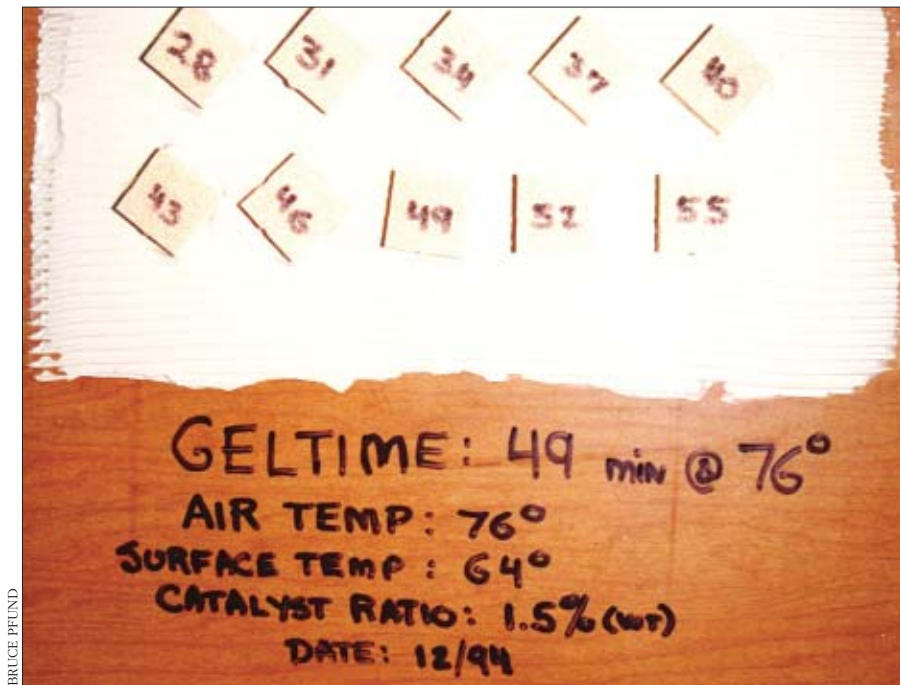 28 31 34 37 40
43 46 49 52 55
GELTIME: 49 min @ 76°
AIR TEMP: 76°
SURFACE TEMP: 64°
CATALYST RATIO: 1.5% (WT)
DATE: 12/94
BRUCE PFUND